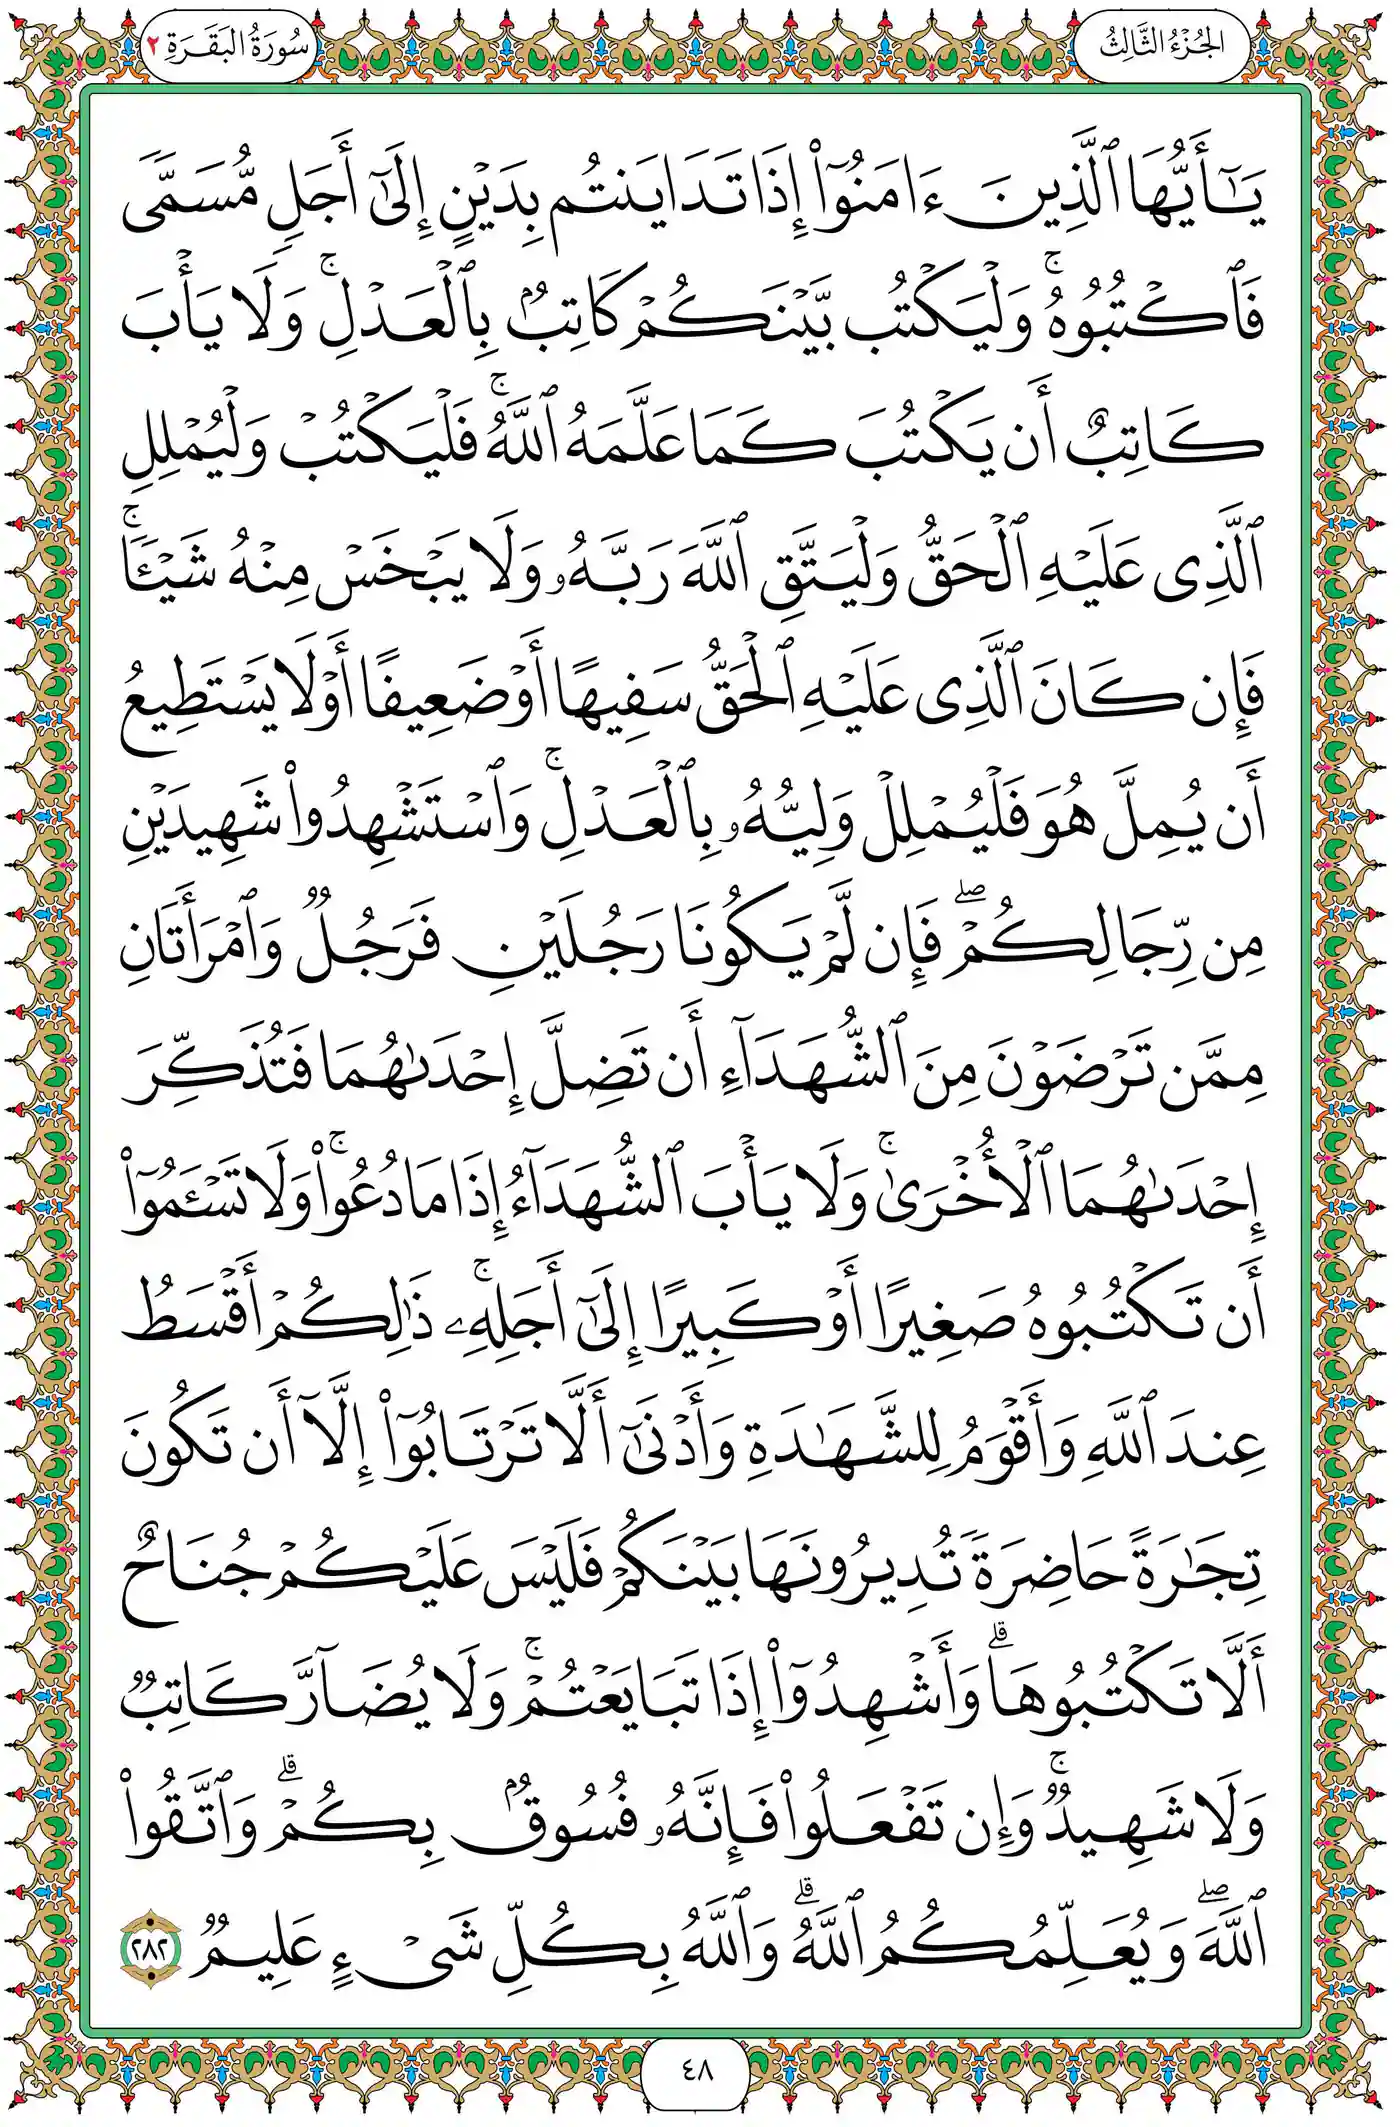 الجُزْءُ الثَّالِثُ
سُورَةُ البَقَرَةِ ٢
يَٰٓأَيُّهَا ٱلَّذِينَ ءَامَنُوٓا۟ إِذَا تَدَايَنتُم بِدَيْنٍ إِلَىٰٓ أَجَلٍ مُّسَمًّى
فَٱكْتُبُوهُ ۚ وَلْيَكْتُب بَّيْنَكُمْ كَاتِبٌۢ بِٱلْعَدْلِ ۚ وَلَا يَأْبَ
كَاتِبٌ أَن يَكْتُبَ كَمَا عَلَّمَهُ ٱللَّهُ ۚ فَلْيَكْتُبْ وَلْيُمْلِلِ
ٱلَّذِى عَلَيْهِ ٱلْحَقُّ وَلْيَتَّقِ ٱللَّهَ رَبَّهُۥ وَلَا يَبْخَسْ مِنْهُ شَيْـًٔا ۚ
فَإِن كَانَ ٱلَّذِى عَلَيْهِ ٱلْحَقُّ سَفِيهًا أَوْ ضَعِيفًا أَوْ لَا يَسْتَطِيعُ
أَن يُمِلَّ هُوَ فَلْيُمْلِلْ وَلِيُّهُۥ بِٱلْعَدْلِ ۚ وَٱسْتَشْهِدُوا۟ شَهِيدَيْنِ
مِن رِّجَالِكُمْ ۖ فَإِن لَّمْ يَكُونَا رَجُلَيْنِ فَرَجُلٌ وَٱمْرَأَتَانِ
مِمَّن تَرْضَوْنَ مِنَ ٱلشُّهَدَآءِ أَن تَضِلَّ إِحْدَىٰهُمَا فَتُذَكِّرَ
إِحْدَىٰهُمَا ٱلْأُخْرَىٰ ۚ وَلَا يَأْبَ ٱلشُّهَدَآءُ إِذَا مَا دُعُوا۟ ۚ وَلَا تَسْـَٔمُوٓا۟
أَن تَكْتُبُوهُ صَغِيرًا أَوْ كَبِيرًا إِلَىٰٓ أَجَلِهِۦ ۚ ذَٰلِكُمْ أَقْسَطُ
عِندَ ٱللَّهِ وَأَقْوَمُ لِلشَّهَٰدَةِ وَأَدْنَىٰٓ أَلَّا تَرْتَابُوٓا۟ إِلَّآ أَن تَكُونَ
تِجَٰرَةً حَاضِرَةً تُدِيرُونَهَا بَيْنَكُمْ فَلَيْسَ عَلَيْكُمْ جُنَاحٌ
أَلَّا تَكْتُبُوهَا ۗ وَأَشْهِدُوٓا۟ إِذَا تَبَايَعْتُمْ ۚ وَلَا يُضَآرَّ كَاتِبٌ
وَلَا شَهِيدٌ ۚ وَإِن تَفْعَلُوا۟ فَإِنَّهُۥ فُسُوقٌۢ بِكُمْ ۗ وَٱتَّقُوا۟
ٱللَّهَ ۖ وَيُعَلِّمُكُمُ ٱللَّهُ ۗ وَٱللَّهُ بِكُلِّ شَىْءٍ عَلِيمٌ ٢٨٢
٤٨